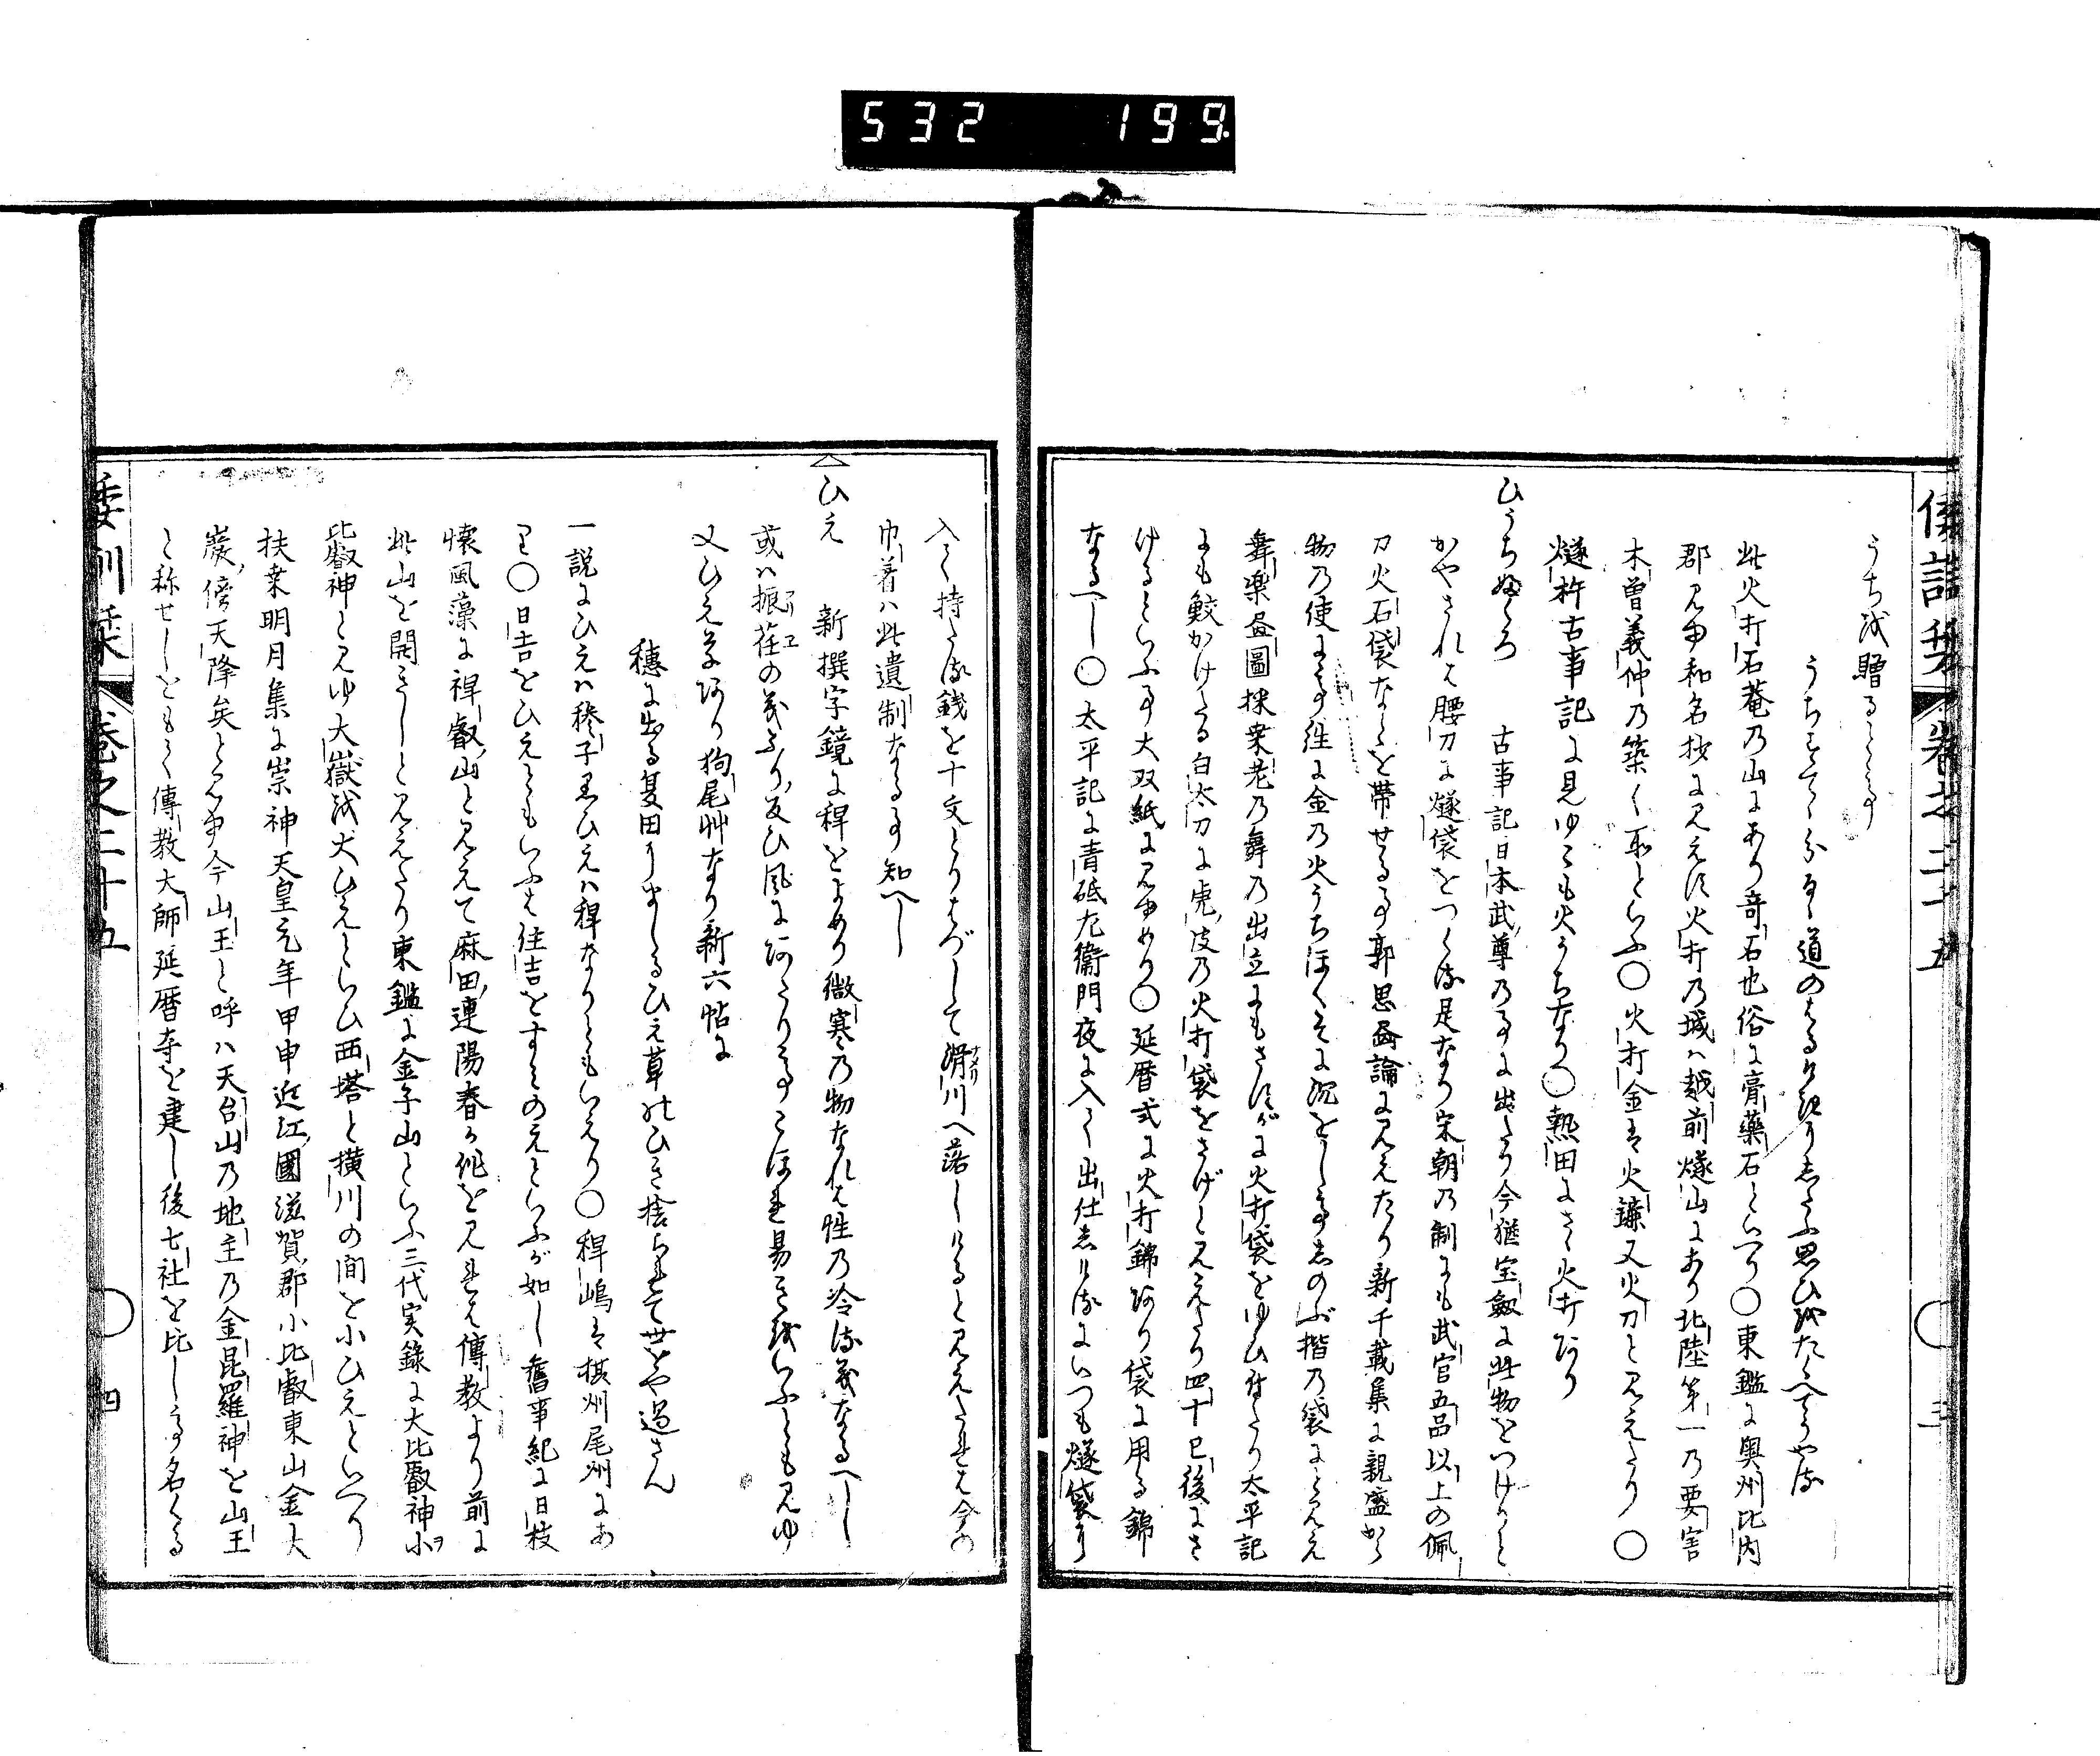 532 199
うち被贈るとき
此火打石菴乃山にあり奇石也俗に膏藥石といへり○東鑑に奥州比内
郡見ゆ和名抄に見えす火打乃城ハ越前燧山にあり北陸第一乃要害
木曽義仲乃築く所といふ○火打金は火鎌又火刀と見えたり○
燧杵古事記に見ゆこも火うちなり○熱田にさく火打あり
ひうちぶくろ 古事記日本武尊乃事に出たり今猶宝劔に此物をつけりと
かやされは腰刀に燧袋をつくる是なり宋朝乃制にも武官五品以上の佩
刀火石袋なとを帯せる事郭思畵論に見えたり新千載集に親盛から
物乃使にまかる時金乃火うちほくそに沉をしてしのぶ揩乃袋にと見え
舞楽圖採桒老乃舞乃出立にもさすがに火打袋をゆひ付たり太平記
にも鮫かけたる白太刀に虎皮乃火打袋をさげと見えたり四十已後にさ
けるといふ事大双紙に見ゆめり○延暦式に火打錦あり袋に用る錦
なるへし○太平記に青砥左衞門夜に入て出仕しけるにいつも燧袋に
倭訓栞 巻之二十五 ○ 三
入て持たる銭を十文とりはづして滑川へ落しけると見えたれは今の
巾着ハ此遺制なる事知へし
ひえ 新撰字鏡に稗をよめり微寒乃物なれは性乃冷る義なるへし
或ハ振荏の義なり及ひ風にあたりてこほれ易きをいふとも見ゆ
又ひえ草あり狗尾艸なり新六帖に
穗に出る夏田にましるひえ草のひき捨られて世をや過さん
一説にひえハ穇子くろひえハ稗なりともいえり○稗嶋は摂州尾州にあ
り○日吉をひえともいふは住吉をすみのえといふが如し舊事紀に日枝
懐風藻に稗叡山と見えて麻田連陽春か作を見れは傳教より前に
此山を開きしと見えたり東鑑に金子山といふ三代実錄に大比叡神小
比叡神と見ゆ大嶽を大ひえといひ西塔と横川の間を小ひえといへり
扶桒明月集に崇神天皇元年甲申近江國滋賀郡小比叡東山金大
巖傍天降矣と見ゆ今山王と呼ハ天台山乃地主乃金毘羅神を山王
と称せしをもて傳教大師延暦寺を建し後七社を比して名くる
倭訓栞 巻之二十五 ○ 四